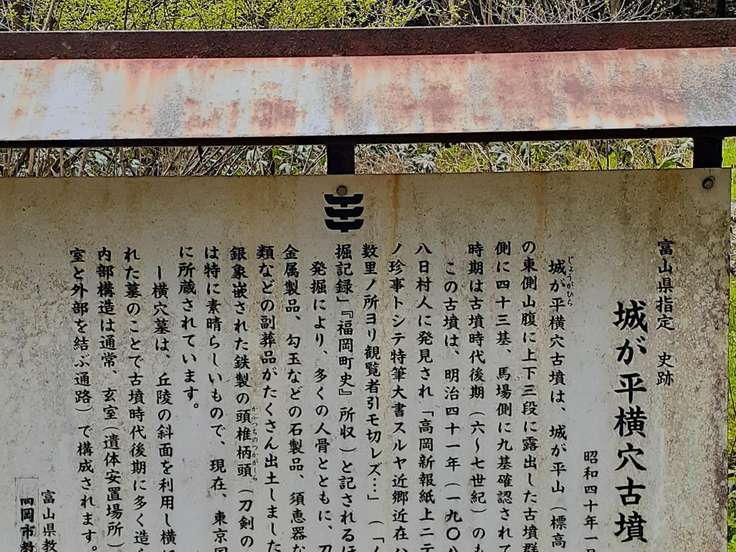 富山県指定 史跡
城が平横穴古墳
昭和四十年一
じょうがひら
城が平横穴古墳は、城が平山（標高
の東側山腹に上下三段に露出した古墳群
側に四十三基、馬場側に九基確認されて
時期は古墳時代後期（六～七世紀）のも
この古墳は、明治四十一年（一九〇八
八日村人に発見され「高岡新報紙上ニテ
ノ珍事トシテ特筆大書スルヤ近郷近在ハ
数里ノ所ヨリ観覧者引モ切レズ…」（「
掘記録」『福岡町史』所収）と記されるほ
発掘により、多くの人骨とともに、刀
金属製品、勾玉などの石製品、須恵器な
類などの副葬品がたくさん出土しました
かぶつちのつかがしら
銀象嵌された鉄製の頭椎柄頭（刀剣の
は特に素晴らしいもので、現在、東京国
に所蔵されています。
－横穴墓は、丘陵の斜面を利用し横
れた墓のことで古墳時代後期に多く造
内部構造は通常、玄室（遺体安置場所）
室と外部を結ぶ通路）で構成されます。
富山県教
高岡市教